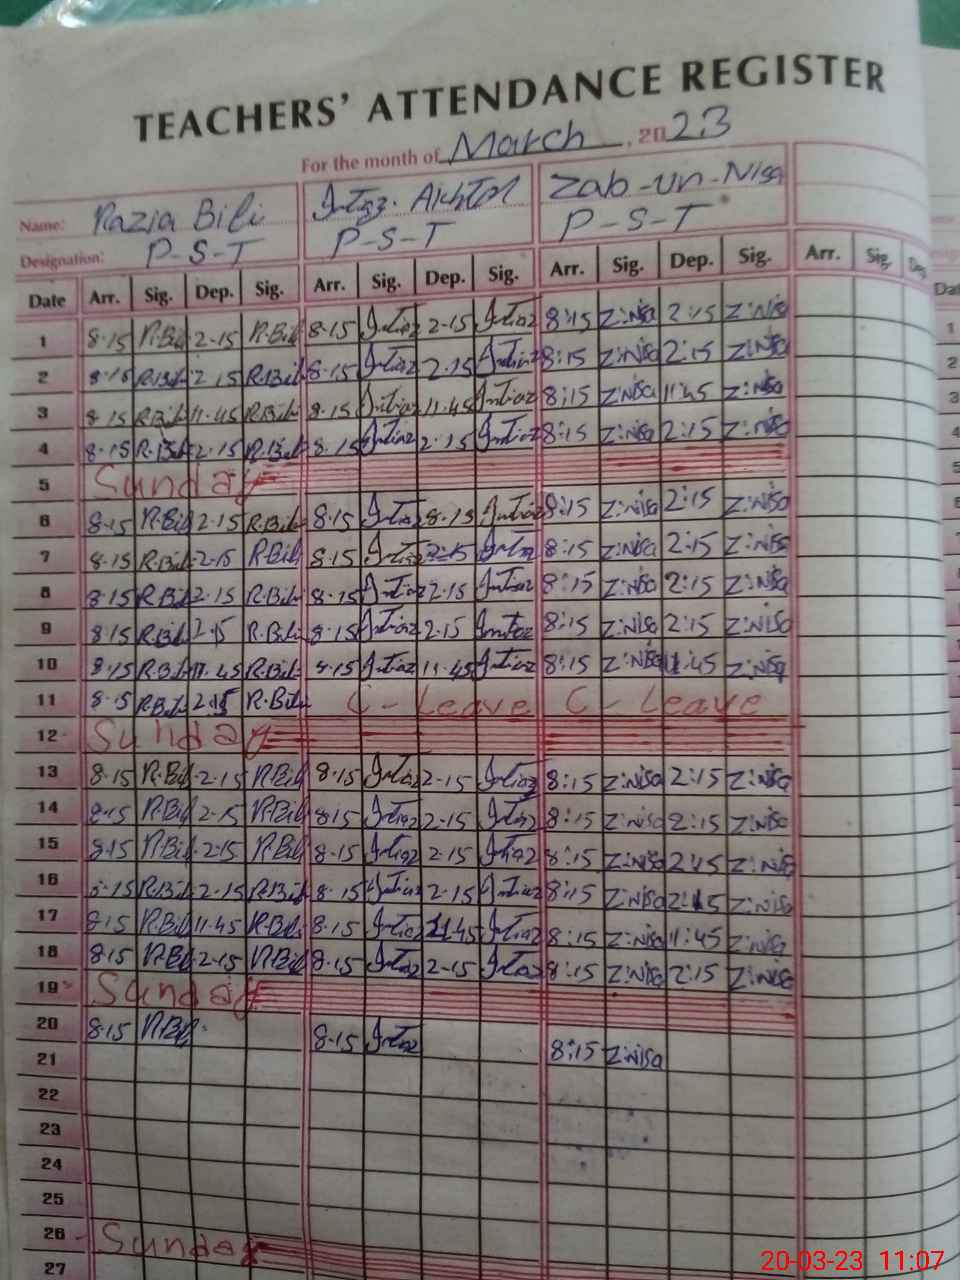 TEACHERS' ATTENDANCE REGISTER
For the month of March, 2023
Name: Razia Bibi Intiaz Akhtar Zab-un-Nisa
Designation: P-S-T P-S-T P-S-T
Date Arr. Sig. Dep. Sig. Arr. Sig. Dep. Sig. Arr. Sig. Dep. Sig. Arr. Sig. Dep
1 8-15 R.Bibi 2-15 R.Bibi 8-15 Intiaz 2-15 Intiaz 8:15 Z:Nisa 2:15 Z:Nisa
2 8-15 R.Bibi 2-15 R.Bibi 8-15 Intiaz 2-15 Intiaz 8:15 Z:Nisa 2:15 Z:Nisa
3 8-15 R.Bibi 11-45 R.Bibi 8-15 Intiaz 11-45 Intiaz 8:15 Z:Nisa 11:45 Z:Nisa
4 8-15 R.Bibi 2-15 R.Bibi 8-15 Intiaz 2-15 Intiaz 8:15 Z:Nisa 2:15 Z:Nisa
5 Sunday
6 8-15 R.Bibi 2-15 R.Bibi 8-15 Intiaz 8-15 Intiaz 8:15 Z:Nisa 2:15 Z:Nisa
7 8-15 R.Bibi 2-15 R.Bibi 8-15 Intiaz 2-15 Intiaz 8:15 Z:Nisa 2:15 Z:Nisa
8 8-15 R.Bibi 2-15 R.Bibi 8-15 Intiaz 2-15 Intiaz 8:15 Z:Nisa 2:15 Z:Nisa
9 8-15 R.Bibi 2-15 R.Bibi 8-15 Intiaz 2-15 Intiaz 8:15 Z:Nisa 2:15 Z:Nisa
10 8-15 R.Bibi 11-45 R.Bibi 8-15 Intiaz 11-45 Intiaz 8:15 Z:Nisa 11:45 Z:Nisa
11 8-15 R.Bibi 2-15 R.Bibi C-Leave C-Leave
12 Sunday
13 8-15 R.Bibi 2-15 R.Bibi 8-15 Intiaz 2-15 Intiaz 8:15 Z:Nisa 2:15 Z:Nisa
14 8-15 R.Bibi 2-15 R.Bibi 8-15 Intiaz 2-15 Intiaz 8:15 Z:Nisa 2:15 Z:Nisa
15 8-15 R.Bibi 2-15 R.Bibi 8-15 Intiaz 2-15 Intiaz 8:15 Z:Nisa 2:15 Z:Nisa
16 8-15 R.Bibi 2-15 R.Bibi 8-15 Intiaz 2-15 Intiaz 8:15 Z:Nisa 2:15 Z:Nisa
17 8-15 R.Bibi 11-45 R.Bibi 8-15 Intiaz 11-45 Intiaz 8:15 Z:Nisa 11:45 Z:Nisa
18 8-15 R.Bibi 2-15 R.Bibi 8-15 Intiaz 2-15 Intiaz 8:15 Z:Nisa 2:15 Z:Nisa
19 Sunday
20 8-15 R.Bibi 8-15 Intiaz 8:15 Z:Nisa
21
22
23
24
25
26 Sunday
27
20-03-23 11:07